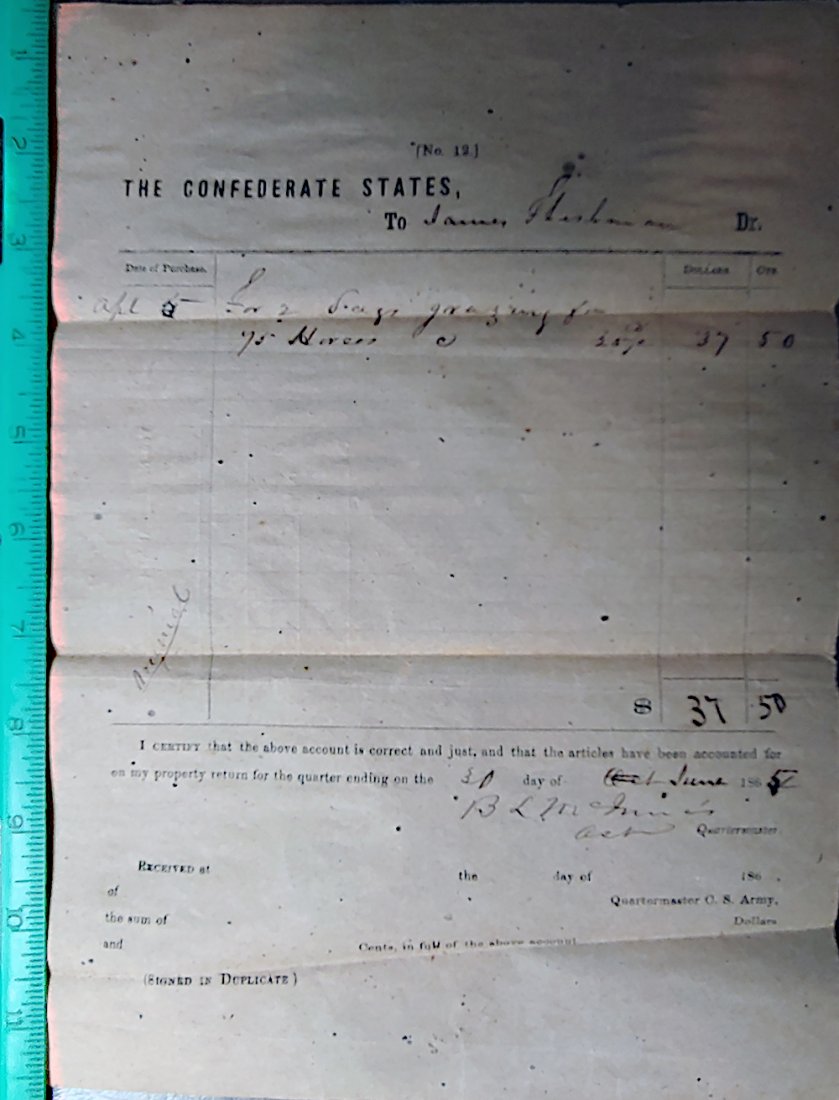 (No. 12.)
THE CONFEDERATE STATES,
To James Dr.
Date of Purchase. DOLLARS CTS
Apl 5 For 2 days grazing for
75 Horses 37 50
Original
$ 37 50
I CERTIFY that the above account is correct and just, and that the articles have been accounted for
on my property return for the quarter ending on the 30 day of June 1865
B L
Quartermaster
RECEIVED at the day of 186 .
of Quartermaster C. S. Army,
the sum of Dollars
and Cents, in full of the above account
(SIGNED IN DUPLICATE)
1
2
3
4
5
6
7
8
9
10
11